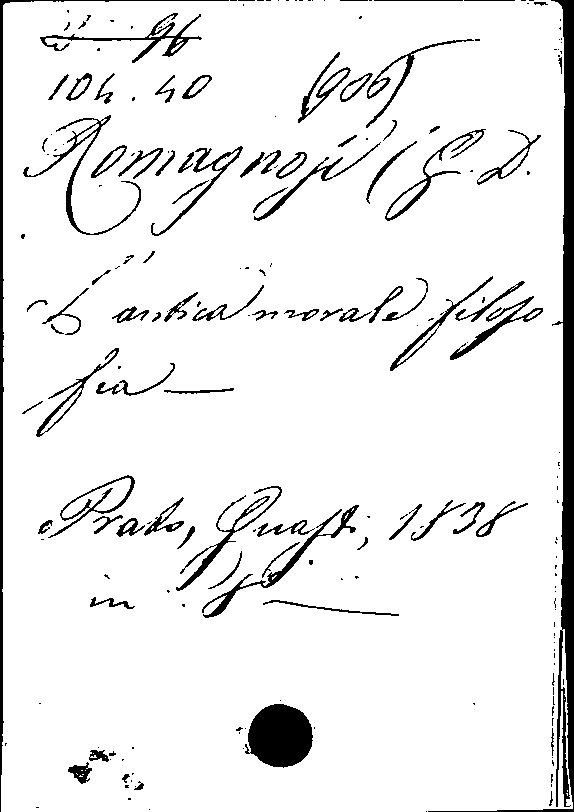 96
104.40 (906)
Romagnosi (G. D.
L'antica morale filoso-
fia —
Prato, Guasti, 1838
in 8° —